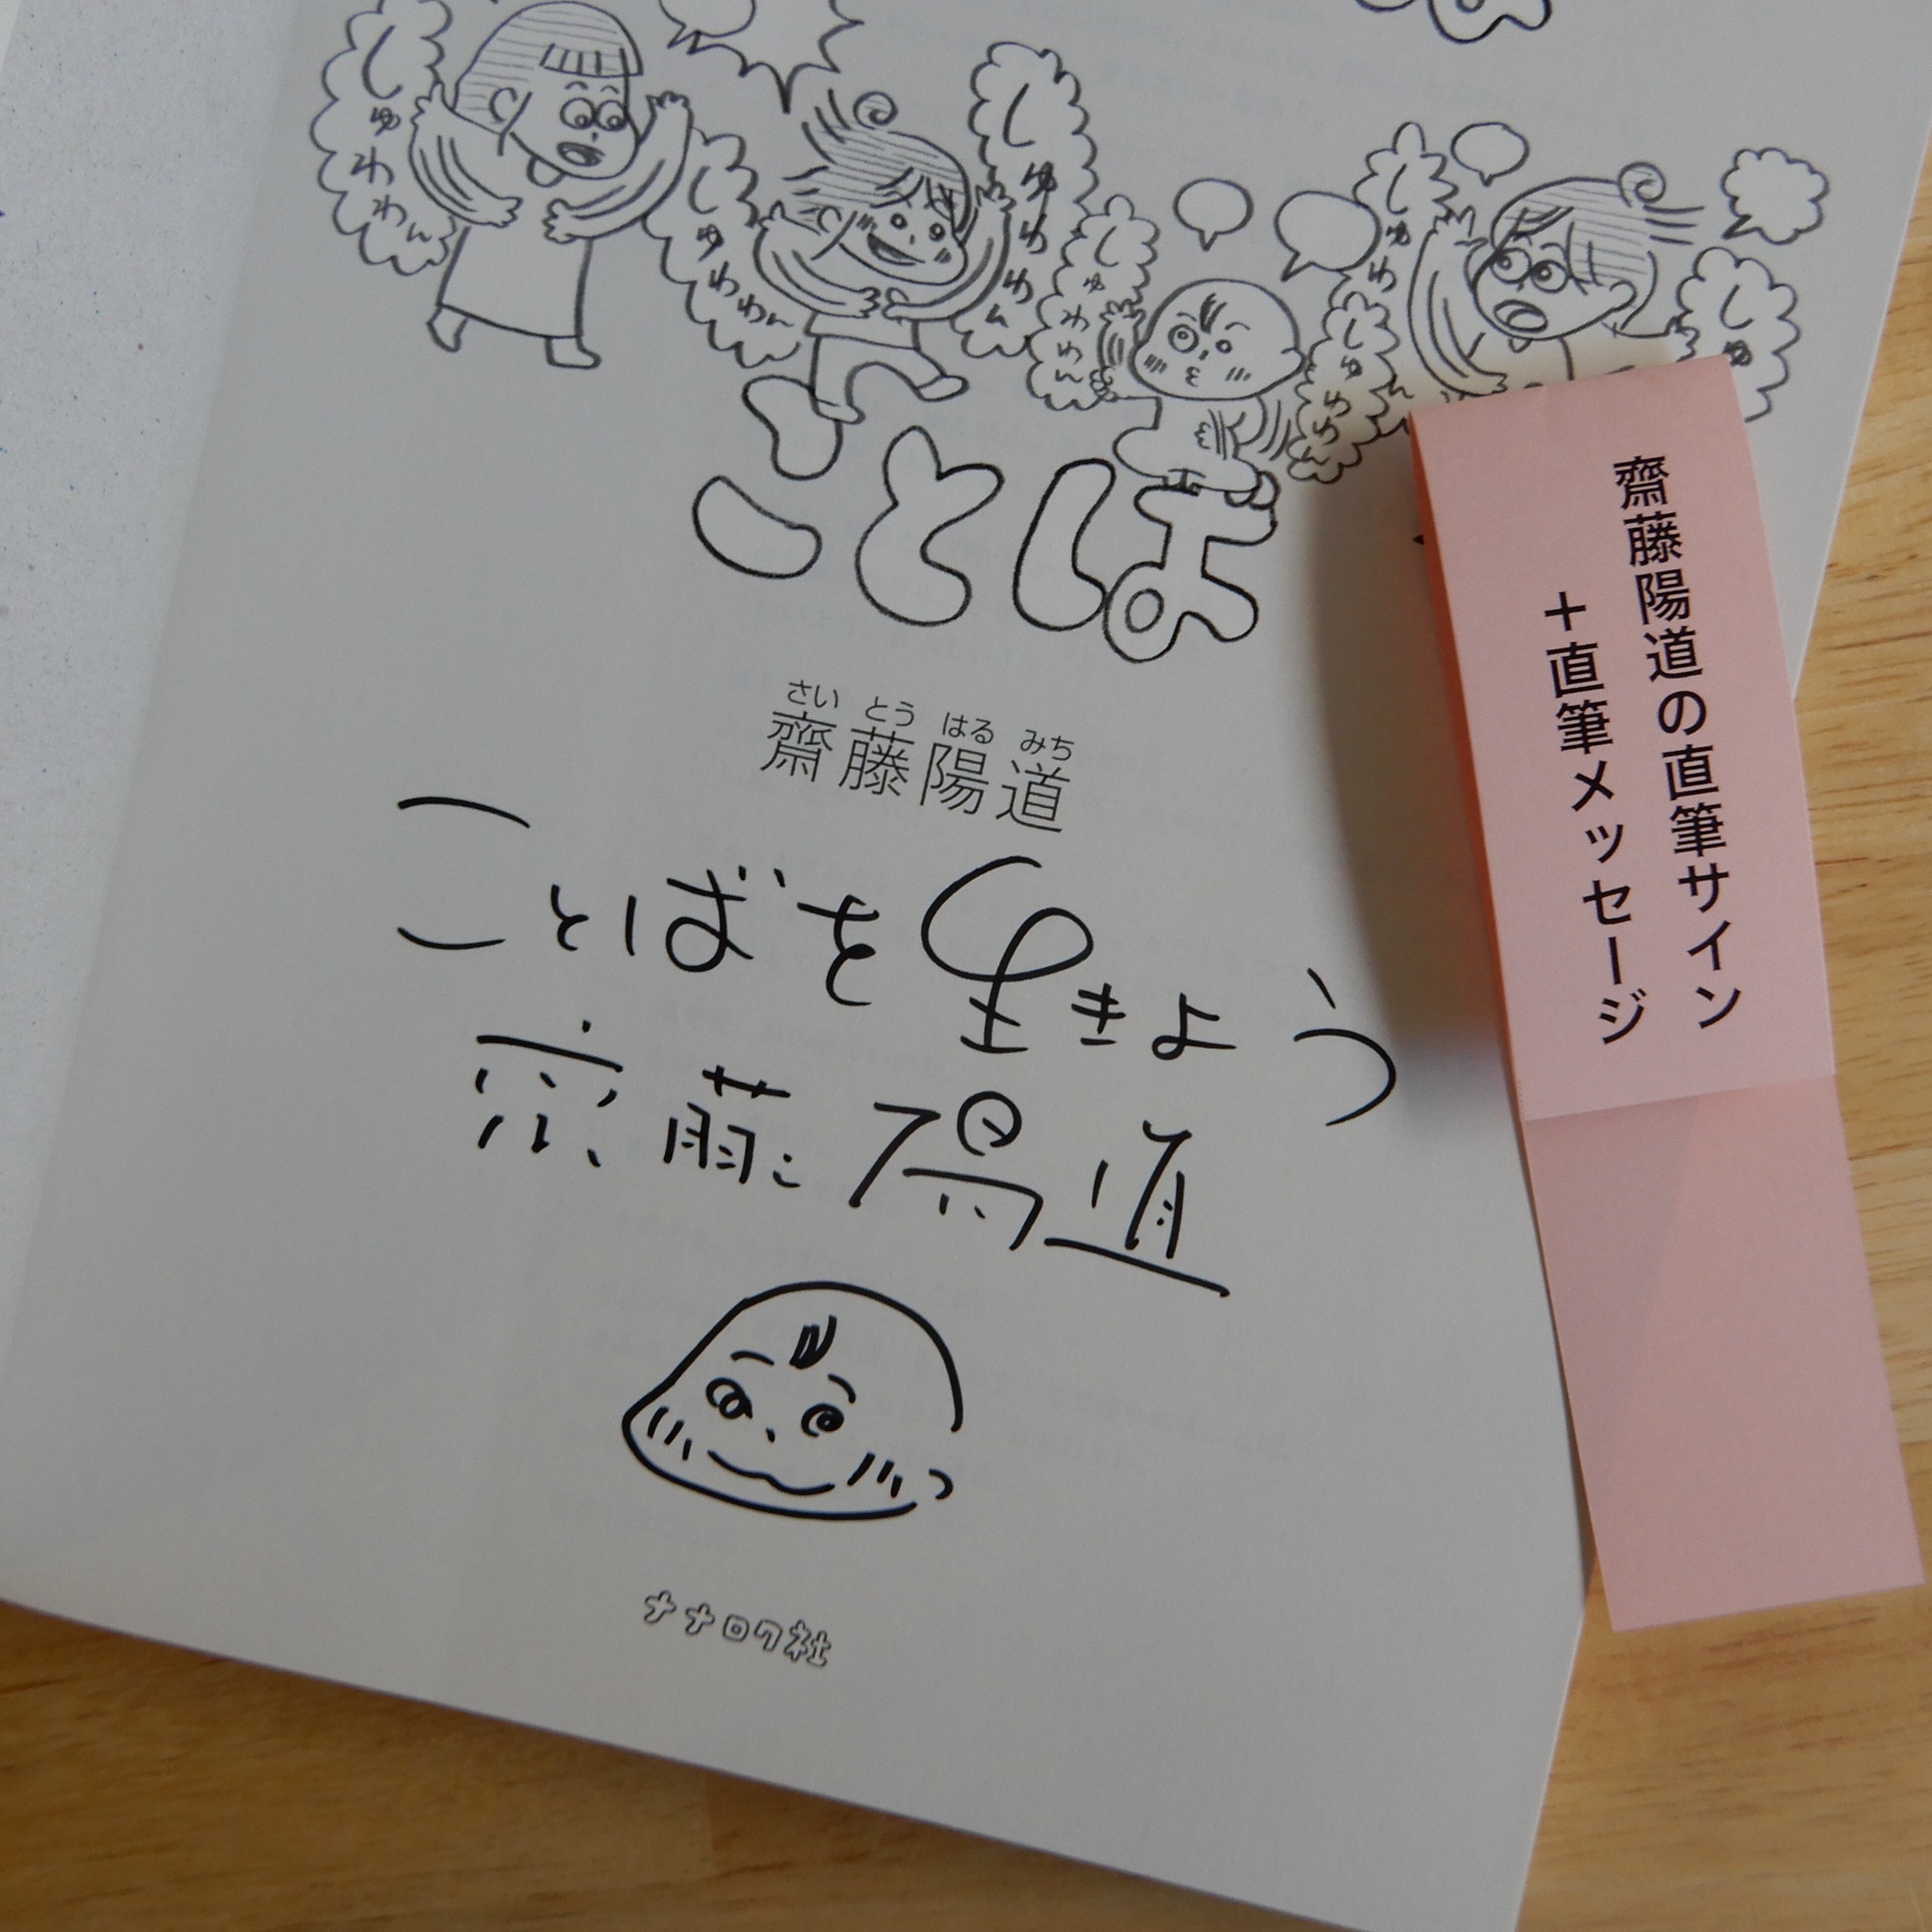 しゅわわん
しゅわわん
しゅわわん
しゅわわん
しゅわわん
しゅわ
しゅ
ことば
さいとうはるみち
齋藤陽道
ことばを生きよう
齋藤陽道
ナナロク社
齋藤陽道の直筆サイン
＋直筆メッセージ